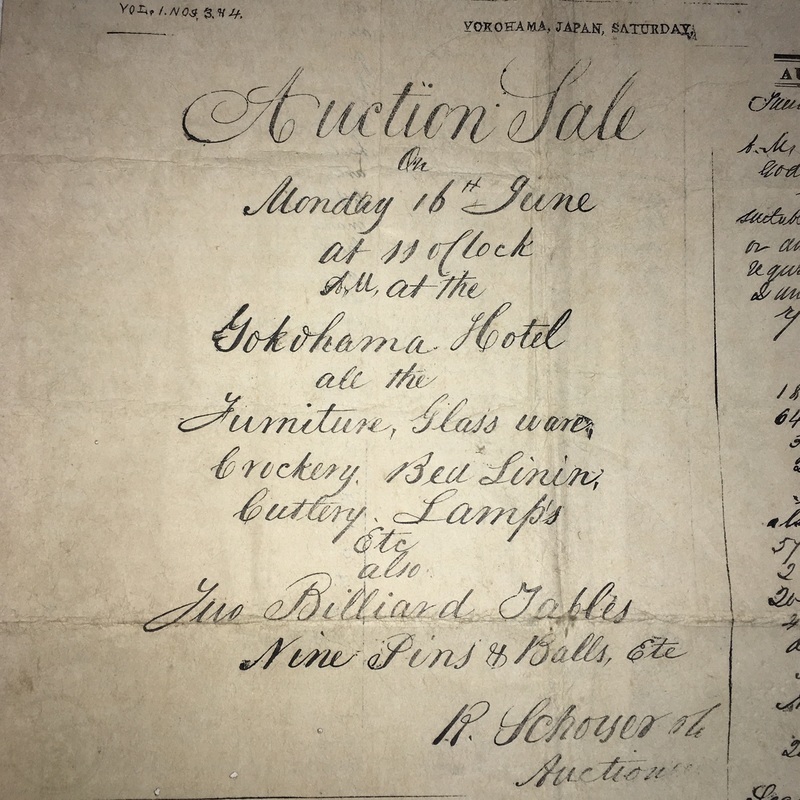 VOL. 1. NOS. 3, & 4.
YOKOHAMA, JAPAN, SATURDAY,
Auction Sale
On
Monday 16th June
at 11 o'Clock
A.M, at the
Yokohama Hotel
all the
Furniture, Glass ware,
Crockery. Bed Linin,
Cuttlery. Lamp's
Etc
also
Two Billiard Tables
Nine Pins & Balls, Etc
R. Schoyer
AU
or
18
64
als
57
2
20